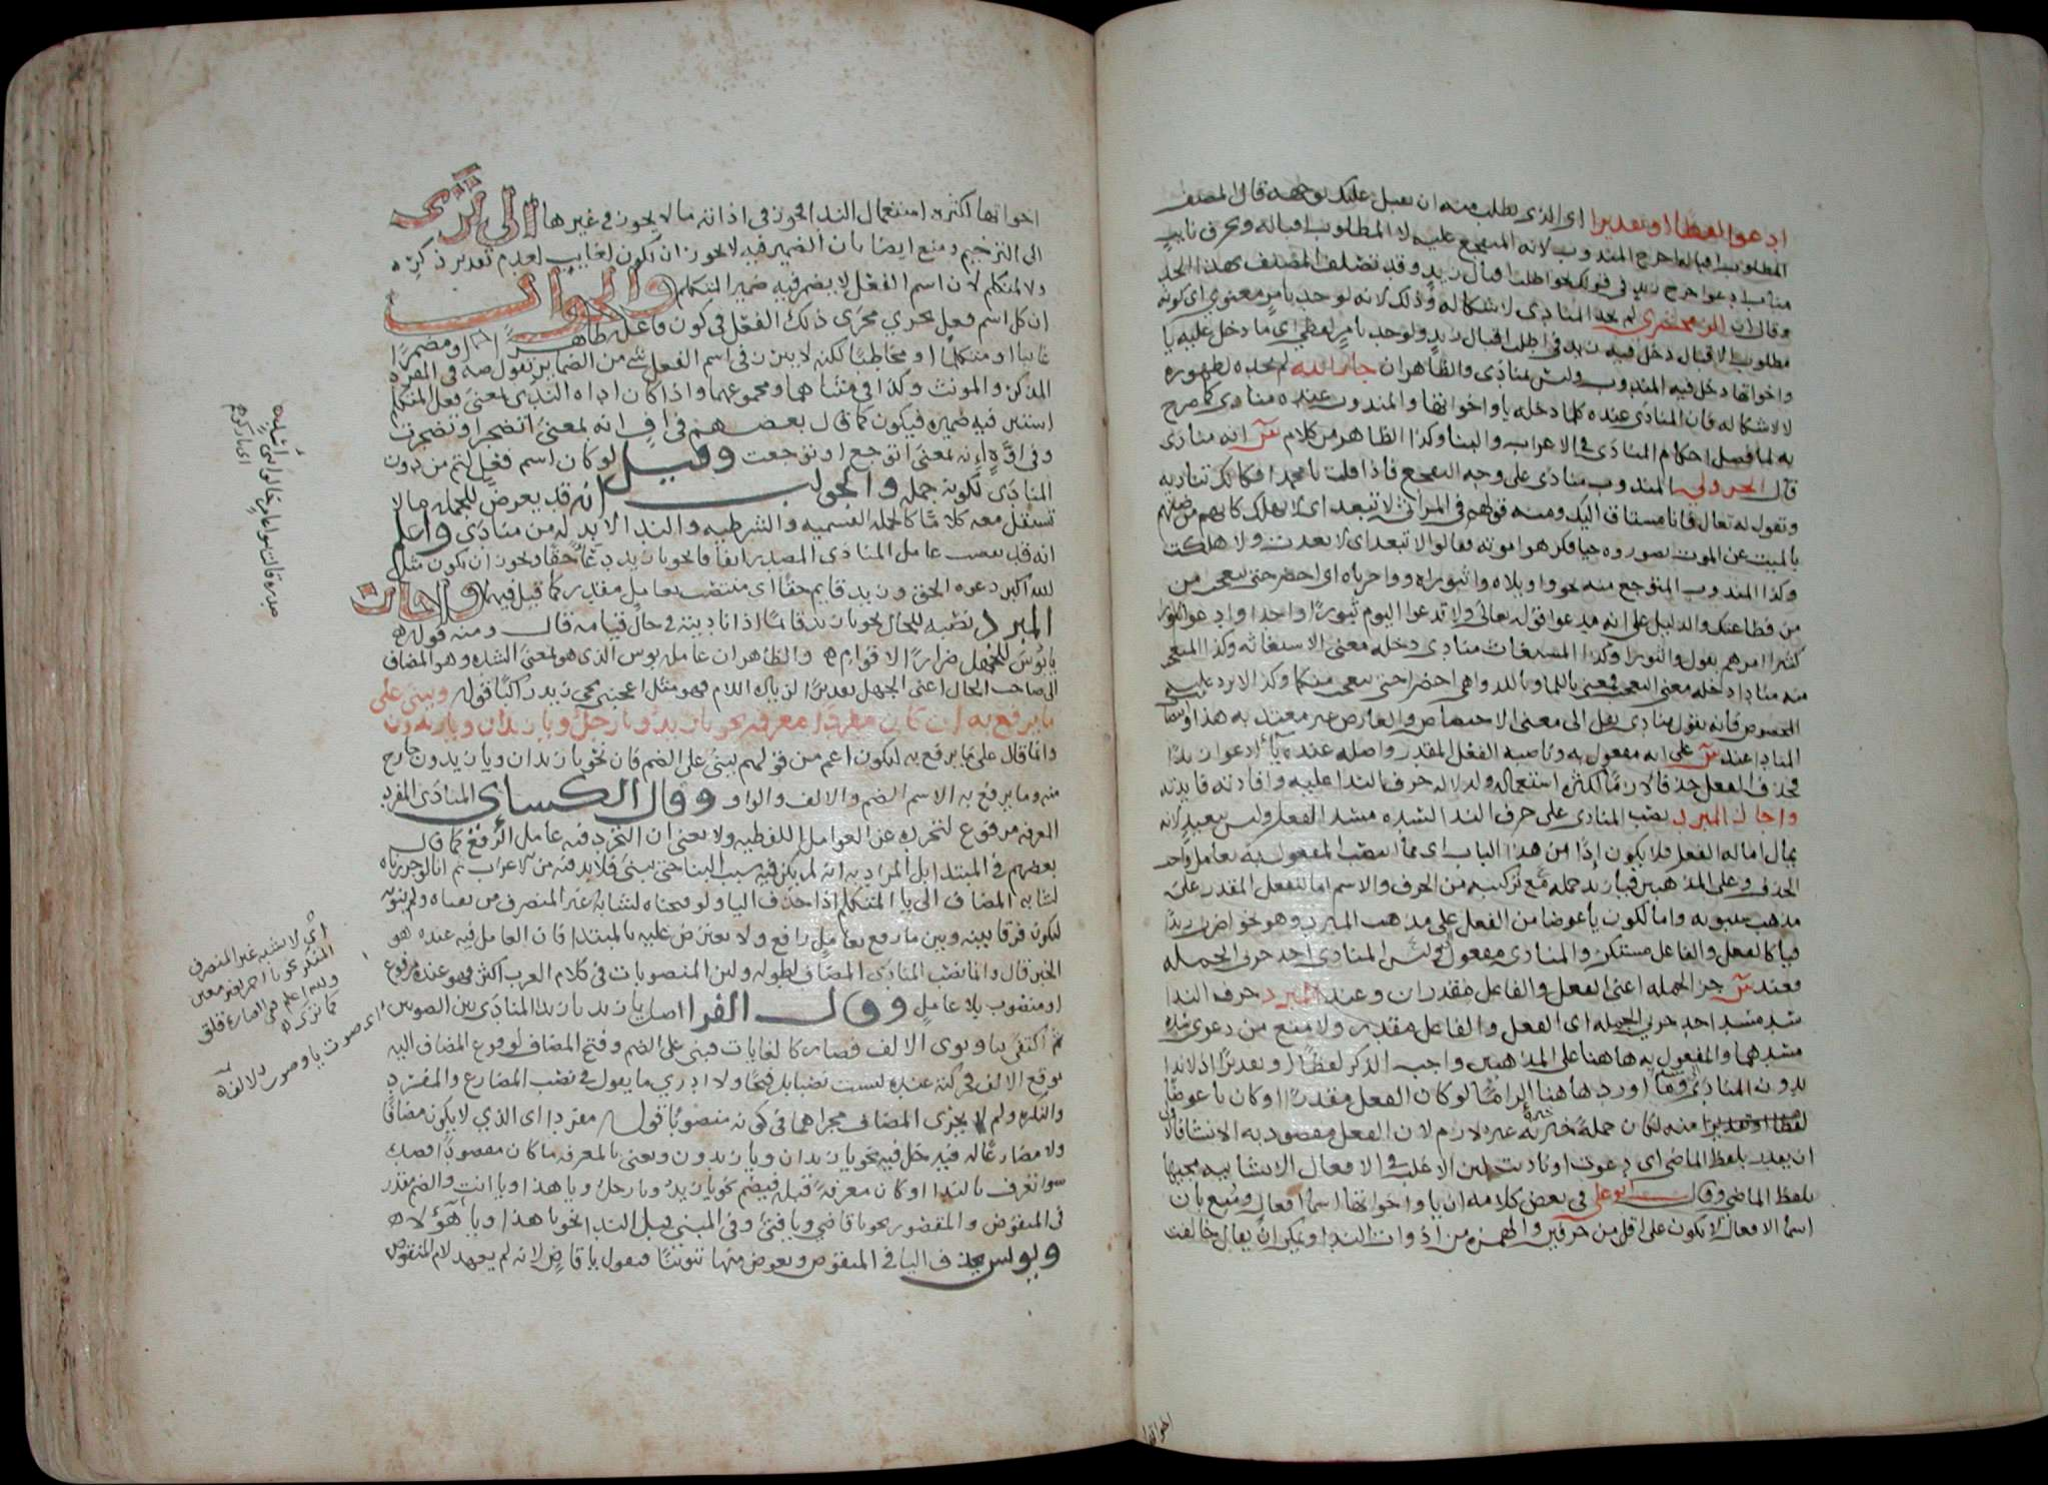 ادعوا لفظا او تقديرا اى الذى تطلب منه ان يقبل عليك بوجهه قال المصنف
المطلوب اقباله اخرج المندوب لانه المتفجع عليه لا المطلوب اقباله وبحرف نايب
مناب ادعوا خرج زيد فى قولك نحو اطلب اقبال زيد وقد تضلف المصنف بهذا الحد
وقال ان الزمخشرى لم يحد المنادى لاشكاله وذلك لانه لو حد بامر معنوى اى كونه
مطلوب الاقبال دخل فيه زيد فى اطلب اقبال زيد ولو حد بامر لفظى اى ما دخل عليه يا
واخواتها دخل فيه المندوب وليس بمنادى والظاهر ان جار الله لم يحده لظهوره
لا لاشكاله فان المنادى عنده كلما دخله يا واخواتها والمندوب عنده منادى كما صرح
به لما فصل احكام المنادى فى الاعراب والبنا وكذا الظاهر من كلام س انه منادى
قال الجزولى المندوب منادى على وجه التفجع فاذا قلت يا محمداه فكانك تناديه
وتقول له تعال فانا مشتاق اليك ومنه قولهم فى المراثى لا تبعد اى لا تهلك كانهم من ضنهم
بالميت عن الموت تصوروه حيا فكرهوا موته فقالوا لا تبعد اى لا بعدت ولا هلكت
وكذا المندوب المتوجع منه نحو واويلاه واثبوراه وواحرباه اى احضر حتى يتعجب من
من فظاعتك والدليل على انه مدعو قوله تعالى ولا تدعوا اليوم ثبورا واحدا وادعوا ثبورا
كثيرا امرهم بقول واثبورا وكذا المستغاث منادى دخله معنى الاستغاثه وكذا المتعجب
منه منادى دخله معنى التعجب فمعنى يا للما ويا للدواهى احضرا حتى يتعجب منكما وكذا لا يرد عليه
المخصوص فانه يقول منادى نقل الى معنى الاختصاص والعارض غير معتد به هذا وانتصاب
المنادى عند س على انه مفعول به وناصبه الفعل المقدر واصله عنده يا ادعوا زيدا
فحذف الفعل حذفا لازما لكثره استعماله ولدلاله حرف الندا عليه وافادته فايدته
واجاز المبرد نصب المنادى على حرف الندا لسده مسد الفعل وليس ببعيد لانه
يمال اماله الفعل فلا يكون اذا من هذا الباب اى مما انتصب المفعول به بعامل واجب
الحذف وعلى المذهبين فيا زيد جمله مع تركيبه من الحرف والاسم اما للفعل المقدر على
مذهب سيبويه واما لكون يا عوضا من الفعل على مذهب المبرد وهو نحو اضرب زيدا
فيا كالفعل والفاعل مستكن والمنادى مفعول وليس المنادى احد جزءى الجمله
فعند س جزا الجمله اعنى الفعل والفاعل مقدران وعند المبرد حرف الندا
سد مسد احد جزءى الجمله اى الفعل والفاعل مقدر ولا منع من دعوى سده
مسدهما والمفعول به هاهنا على المذهبين واجب الذكر لفظا او تقديرا اذ لا ندا
بدون المنادى وقد اورد هاهنا الزاما لو كان الفعل مقدرا او كان يا عوضا
منه لكان جملة خبرية غير لازم لان الفعل مقصود به الانشا فالاولى
ان يقدر بلفظ الماضى اى دعوت او ناديت لان الاغلب فى الافعال الانشاييه مجيها
بلفظ الماضى وقال ابو على فى بعض كلامه ان يا واخواتها اسما افعال ومنع بان
اسما الافعال لا تكون على اقل من حرفين والهمزه من ادوات الندا ويمكن ان يقال خالفت
اخواتها
اخواتها لكثره استعمال الندا فجوز فى اداته ما لا يجوز فى غيرها الا ترى
الى الترخيم ومنع ايضا بان الضمير فيه لا يجوز ان يكون لغايب لعدم تقدير ذكره
ولا لمتكلم لان اسم الفعل لا يضمر فيه ضمير المتكلم والجواب
ان كل اسم فعل يجرى مجرى ذلك الفعل فى كون فاعله ظاهرا او مضمرا
غايبا او متكلما او مخاطبا لكنه لا يبرز فى اسم الفعل شى من الضماير تقول صه فى المفرد
المذكر والمونث وكذا فى مثناهما ومجموعهما واذا كان اداه الندا بمعنى فعل المتكلم
استتر فيه ضميره فيكون كما قال بعضهم فى اف انه بمعنى اتضجر او تضجرت
وفى اوه انه بمعنى اتوجع او توجعت وقيل لو كان اسم فعل لتم من دون
المنادى لكونه جمله والجواب انه قد يعرض للجمله ما لا
تستقل معه كلاما كالجمله القسميه والشرطيه والندا لا بد له من منادى واعلم
انه قد ينصب عامل المنادى المصدر اتفاقا نحو يا زيد دعا حقا ويجوز ان يكون مثل
الله اكبر دعوه الحق وزيد قايم حقا اى منتصب بعامل مقدر كما قيل فيهما واجاز
المبرد نصبه للحال نحو يا زيد قايما اذا ناديته فى حال قيامه قال ومنه قوله
يا بوس للجهل ضرارا لاقوام والظاهر ان عامله بوس الذى هو بمعنى الشده وهو المضاف
الى صاحب الحال اعنى الجهل تقديرا لزياده اللام فهو مثل اعجبنى مجى زيد راكبا قوله ويبنى على
ما يرفع به ان كان مفردا معرفه نحو يا زيد ويا رجل ويا زيدان ويا زيدون
وانما قال على ما يرفع به ليكون اعم من قولهم يبنى على الضم فان نحو يا زيدان ويا زيدون خارج
منه وما يرفع به الاسم الضم والالف والواو وقال الكسائ المنادى المفرد
المعرفه مرفوع لتجرده عن العوامل اللفظيه ولا يعنى ان التجرد فيه عامل الرفع كما قال
بعضهم فى المبتدا بل المراد به انه لم يكن فيه سبب البنا حتى يبنى فلا بد فيه من الاعراب ثم انا لو جررناه
لشابه المضاف الى يا المتكلم اذا حذف اليا ولو فتحناه لشابه غير المنصرف من رفعناه ولم ننونه
ليكون فرقا بينه وبين ما رفع بعامل رافع ولا يعترض عليه بالمبتدا فان العامل فيه عنده هو
الخبر قال وانما نصب المنادى المضاف لطوله ولان المنصوبات فى كلام العرب اكثر فهو عنده مرفوع
او منصوب بلا عامل وقال الفرا اصل يا زيد يا زيدا المنادى بين الصوتين
ثم اكتفى بيا ونوى الالف فصار كالغايات فبنى على الضم وفتح المضاف لوقوع المضاف اليه
موقع الالف فحركته عنده ليست نصبا بل فتحا ولا ادرى ما يقول فى نصب المضارع والمفرد
والنكره ولم لا يجرى المضاف مجراهما فى كونه منصوبا قوله مفردا اى الذى لا يكون مضافا
ولا مضارعا له فيدخل فيه نحو يا زيدان ويا زيدون ويعنى بالمعرفه ما كان مقصودا قصدك
سوا تعرف بالندا او كان معرفة قبله فيضم نحو يا زيد ويا رجل ويا هذا ويا انت والضم مقدر
فى المنقوص والمقصور نحو يا قاضى ويا فتى وفى المبنى قبل الندا نحو يا هذا ويا هؤلاء
ويونس يحذف اليا فى المنقوص ويعوض منها تنوينا فيقول يا قاض لانه لم يعهد لام المنقوص
صدره قالت بنو عامر خالوا بنى اسد
اى تاركوهم
اى لا يشبه غير المنصرف
المنكر نحو يا احمر لغير معين
والله اعلم فى العباره قلق
كما ترى
اى صوت يا وصوت الالف